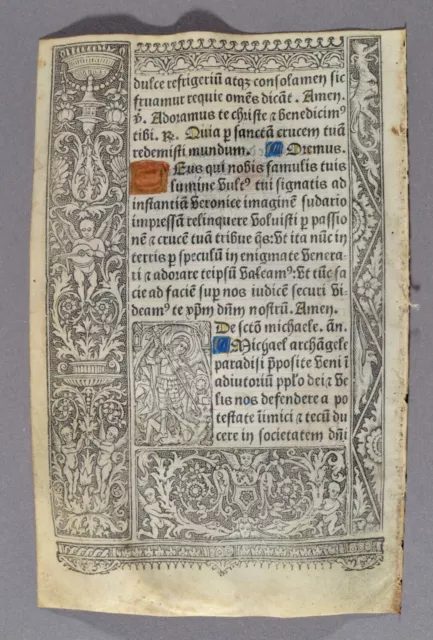 dulce refrigeriū atqꝫ consolamen sic
fruamur requie om̄es dicāt. Amen.
℣. Adoramus te christe ⁊ benedicimꝰ
tibi. ℟. Quia p̱ sanctā crucem tuā
redemisti mundum. Oremus.
Deus qui nobis famulis tuis
lumine vulꝰ tui signatis ad
instantiā veronice imaginē sudario
impressā relinquere voluisti p̱ passio
nē ⁊ crucē tuā tribue q̄s: vt ita nūc in
terris p̱ speculū in enigmate venera
ri ⁊ adorare teipsū valeamꝰ: vt tūc fa
cie ad faciē sup̱ nos iudicē securi vi
deamꝰ te xp̄m dn̄m nostrū. Amen.
De sctō michaele. añ.
Michael archāgele
paradisi p̱posite veni ī
adiutoriū pplo dei ⁊ ve
lis nos defendere a po
testate īimici ⁊ tecū du
cere in societatem dn̄i